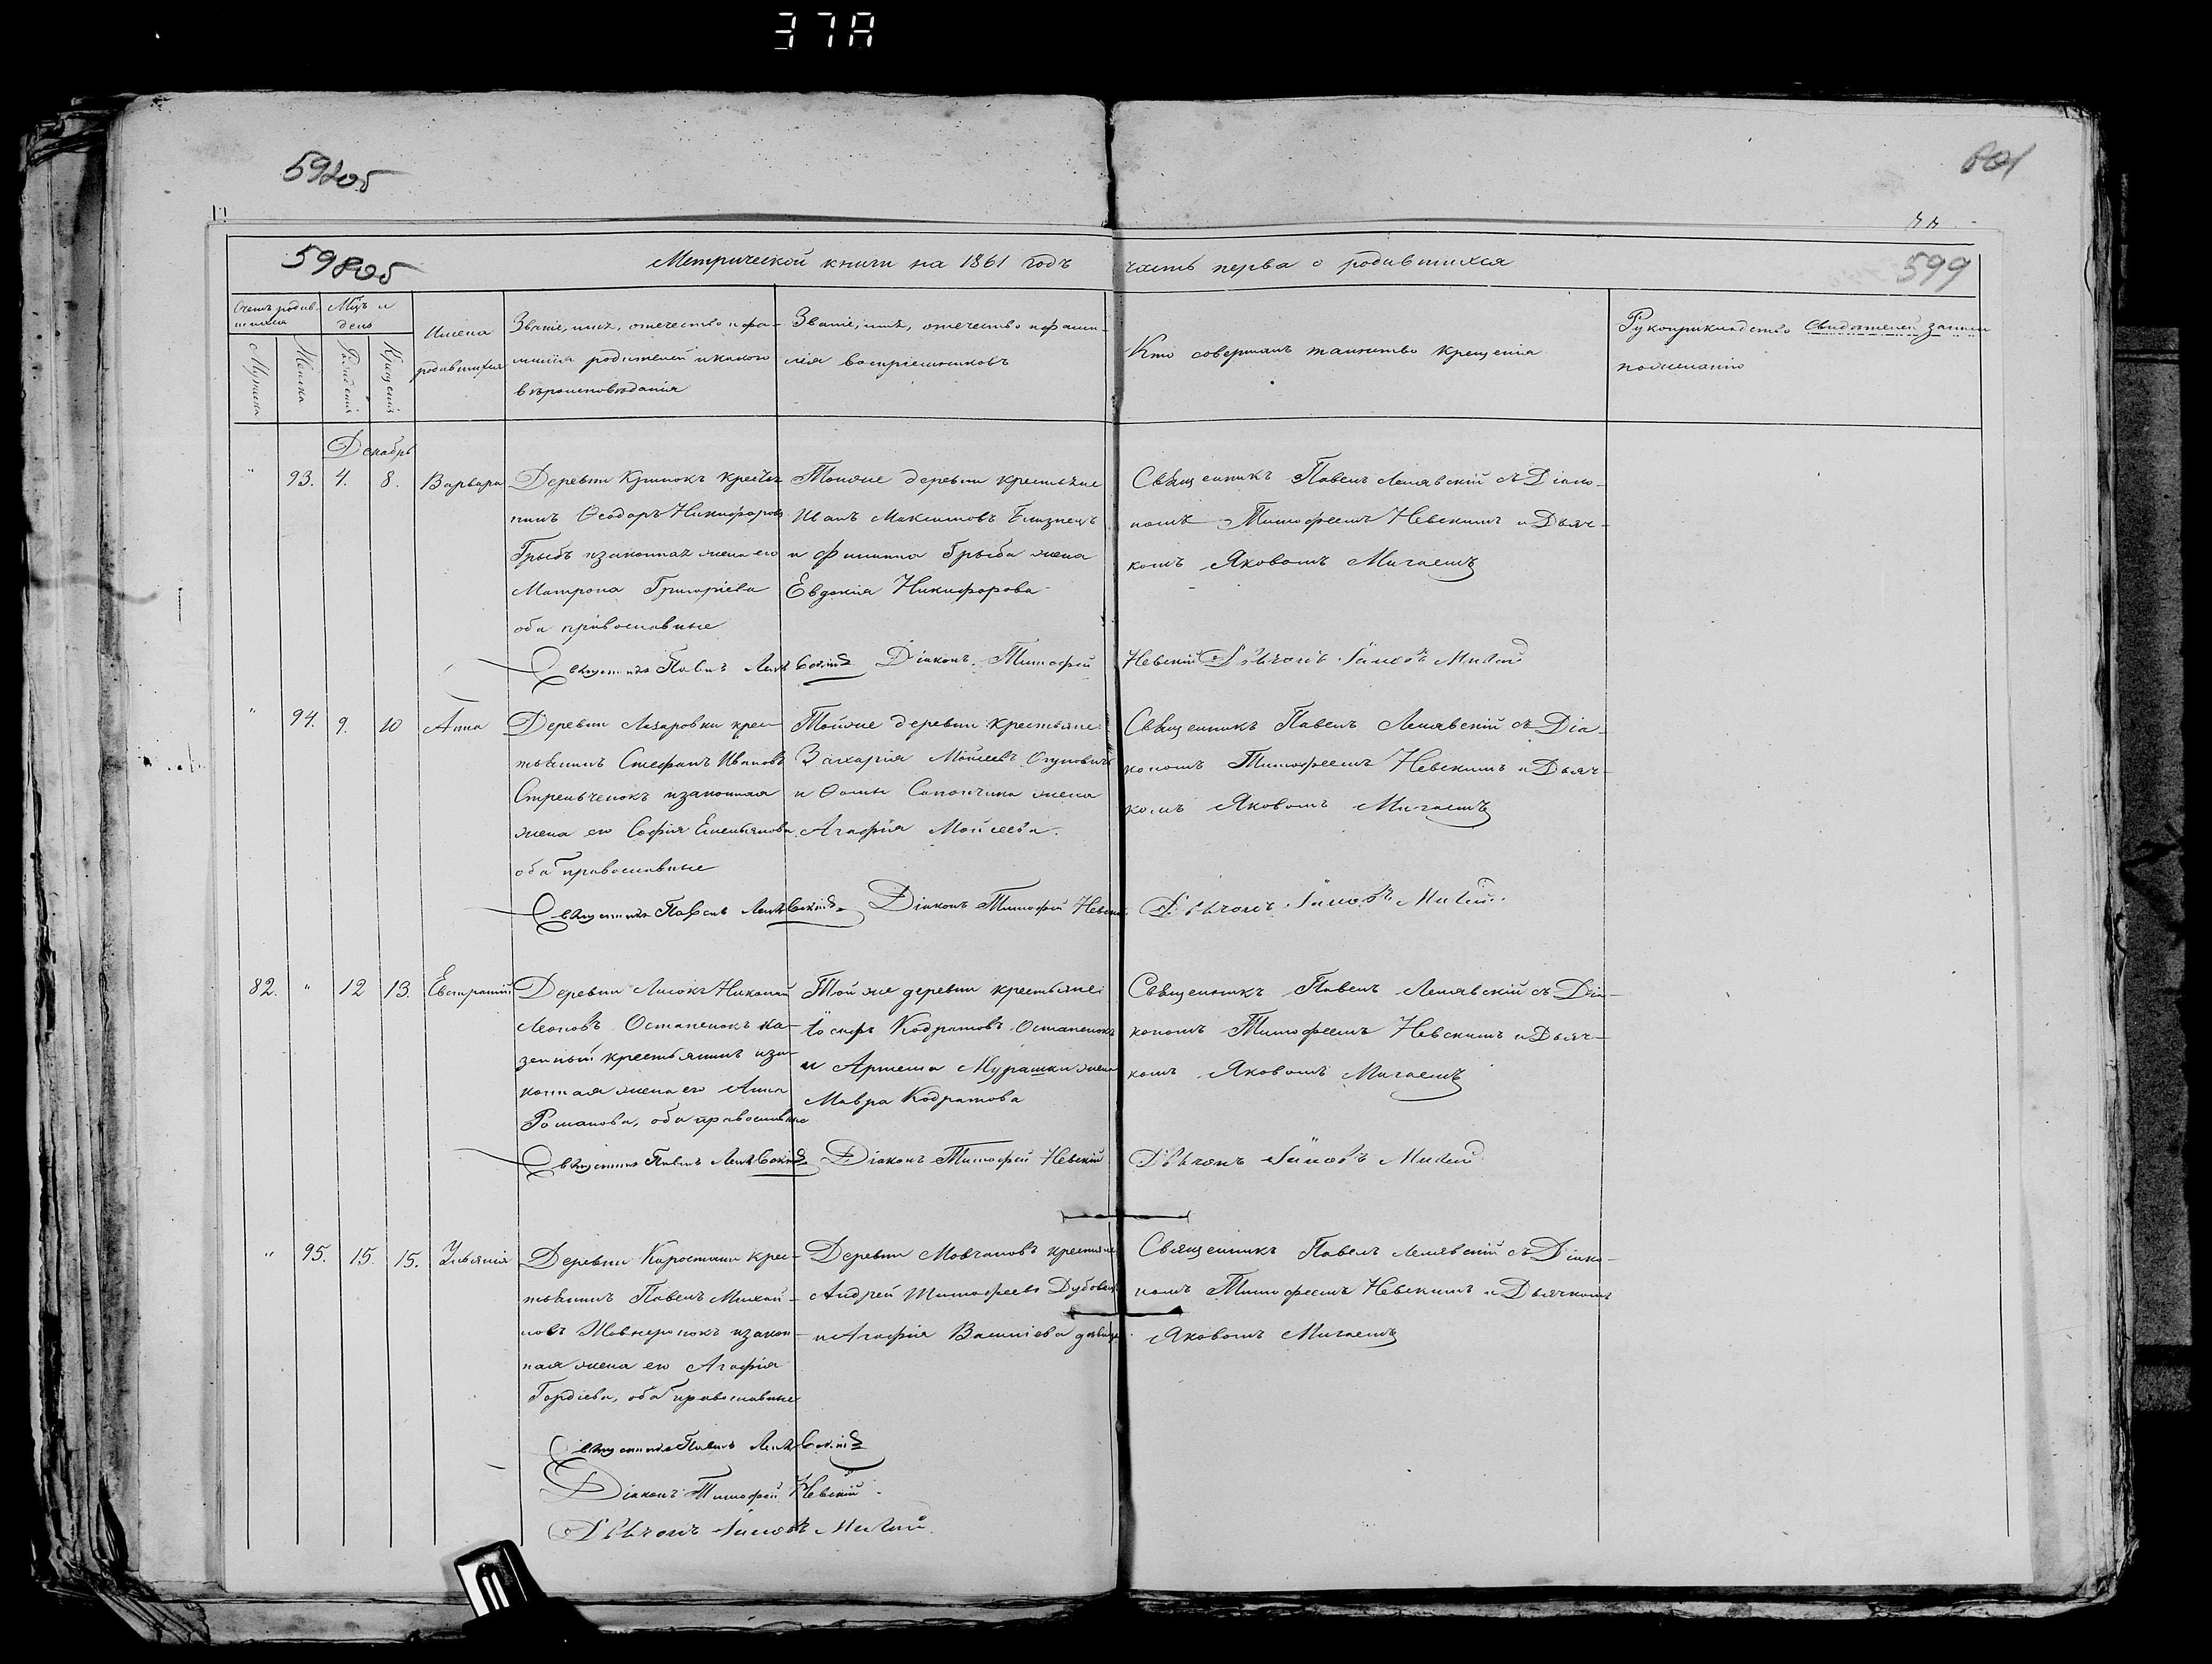 37A
592об
601
598об
Метрической книги на 1861 годъ часть перва о родившихся
599
Счетъ родив-
шихся
Мцъ и
день
Мужска
Женска
Рожденія
Крещенія
Имена
родившихся
Званіе, имя, отечество и фа-
милія родителей и какого
вѣроисповѣданія
Званіе, имя, отечество и фами-
лія воспріемниковъ
Кто совершалъ таинство крещенія
Рукоприкладство свидѣтелей записи
по желанію
Декабрь
" 93. 4. 8. Варвара
Деревни Кринокъ крестья
нинъ Ѳеодоръ Никифоровъ
Грыбъ и законная жена его
Матрона Григоріева
оба православные
Тойже деревни крестьяне
Иванъ Максимовъ Близнецъ
и Филиппа Грыба жена
Евдокія Никифорова
Священникъ Павелъ Лепявскій съ Діако-
номъ Тимофеемъ Невскимъ и Дьяч-
комъ Яковомъ Мигаемъ
Священникъ Павелъ Лепявскій Діаконъ Тимофей Невскій Дьячокъ Яковъ Мигай
" 94. 9. 10 Анна
Деревни Лазаровки крес-
тьянинъ Стефанъ Ивановъ
Стрельченокъ и законная
жена его Софія Емельянова
оба православные
Тойже деревни крестьяне
Захарія Моисеевъ
и Ѳомы жена
Агафія Моисеева.
Священникъ Павелъ Лепявскій съ Діа-
кономъ Тимофеемъ Невскимъ и Дьяч-
комъ Яковомъ Мигаемъ
Священникъ Павелъ Лепявскій Діаконъ Тимофей Невскій Дьячокъ Яковъ Мигай
82. " 12 13. Евстратій
Деревни Лисокъ Николай
Леоновъ Остапенокъ ка-
зенный крестьянинъ и за-
конная жена его Анна
Романова, оба православные
Той же деревни крестьяне
Іосифъ Кодратовъ Остапенокъ
и Артема Мурашки жена
Мавра Кодратова
Священникъ Павелъ Лепявскій съ Діа-
кономъ Тимофеемъ Невскимъ и Дьяч-
комъ Яковомъ Мигаемъ
Священникъ Павелъ Лепявскій Діаконъ Тимофей Невскій Дьячокъ Яковъ Мигай
" 95. 15. 15. Ульянія
Деревни Каростани крес-
тьянинъ Павелъ Михай-
ловъ Жавнеронокъ и закон-
ная жена его Агафія
Гордіева, оба православные
Деревни Мовчановъ крестьяне
Андрей Тимофеевъ Дубовецъ
и Агафія Василіева дѣвица
Священникъ Павелъ Лепявскій съ Діако-
номъ Тимофеемъ Невскимъ и Дьячкомъ
Яковомъ Мигаемъ
Священникъ Павелъ Лепявскій
Діаконъ Тимофей Невскій
Дьячокъ Яковъ Мигай